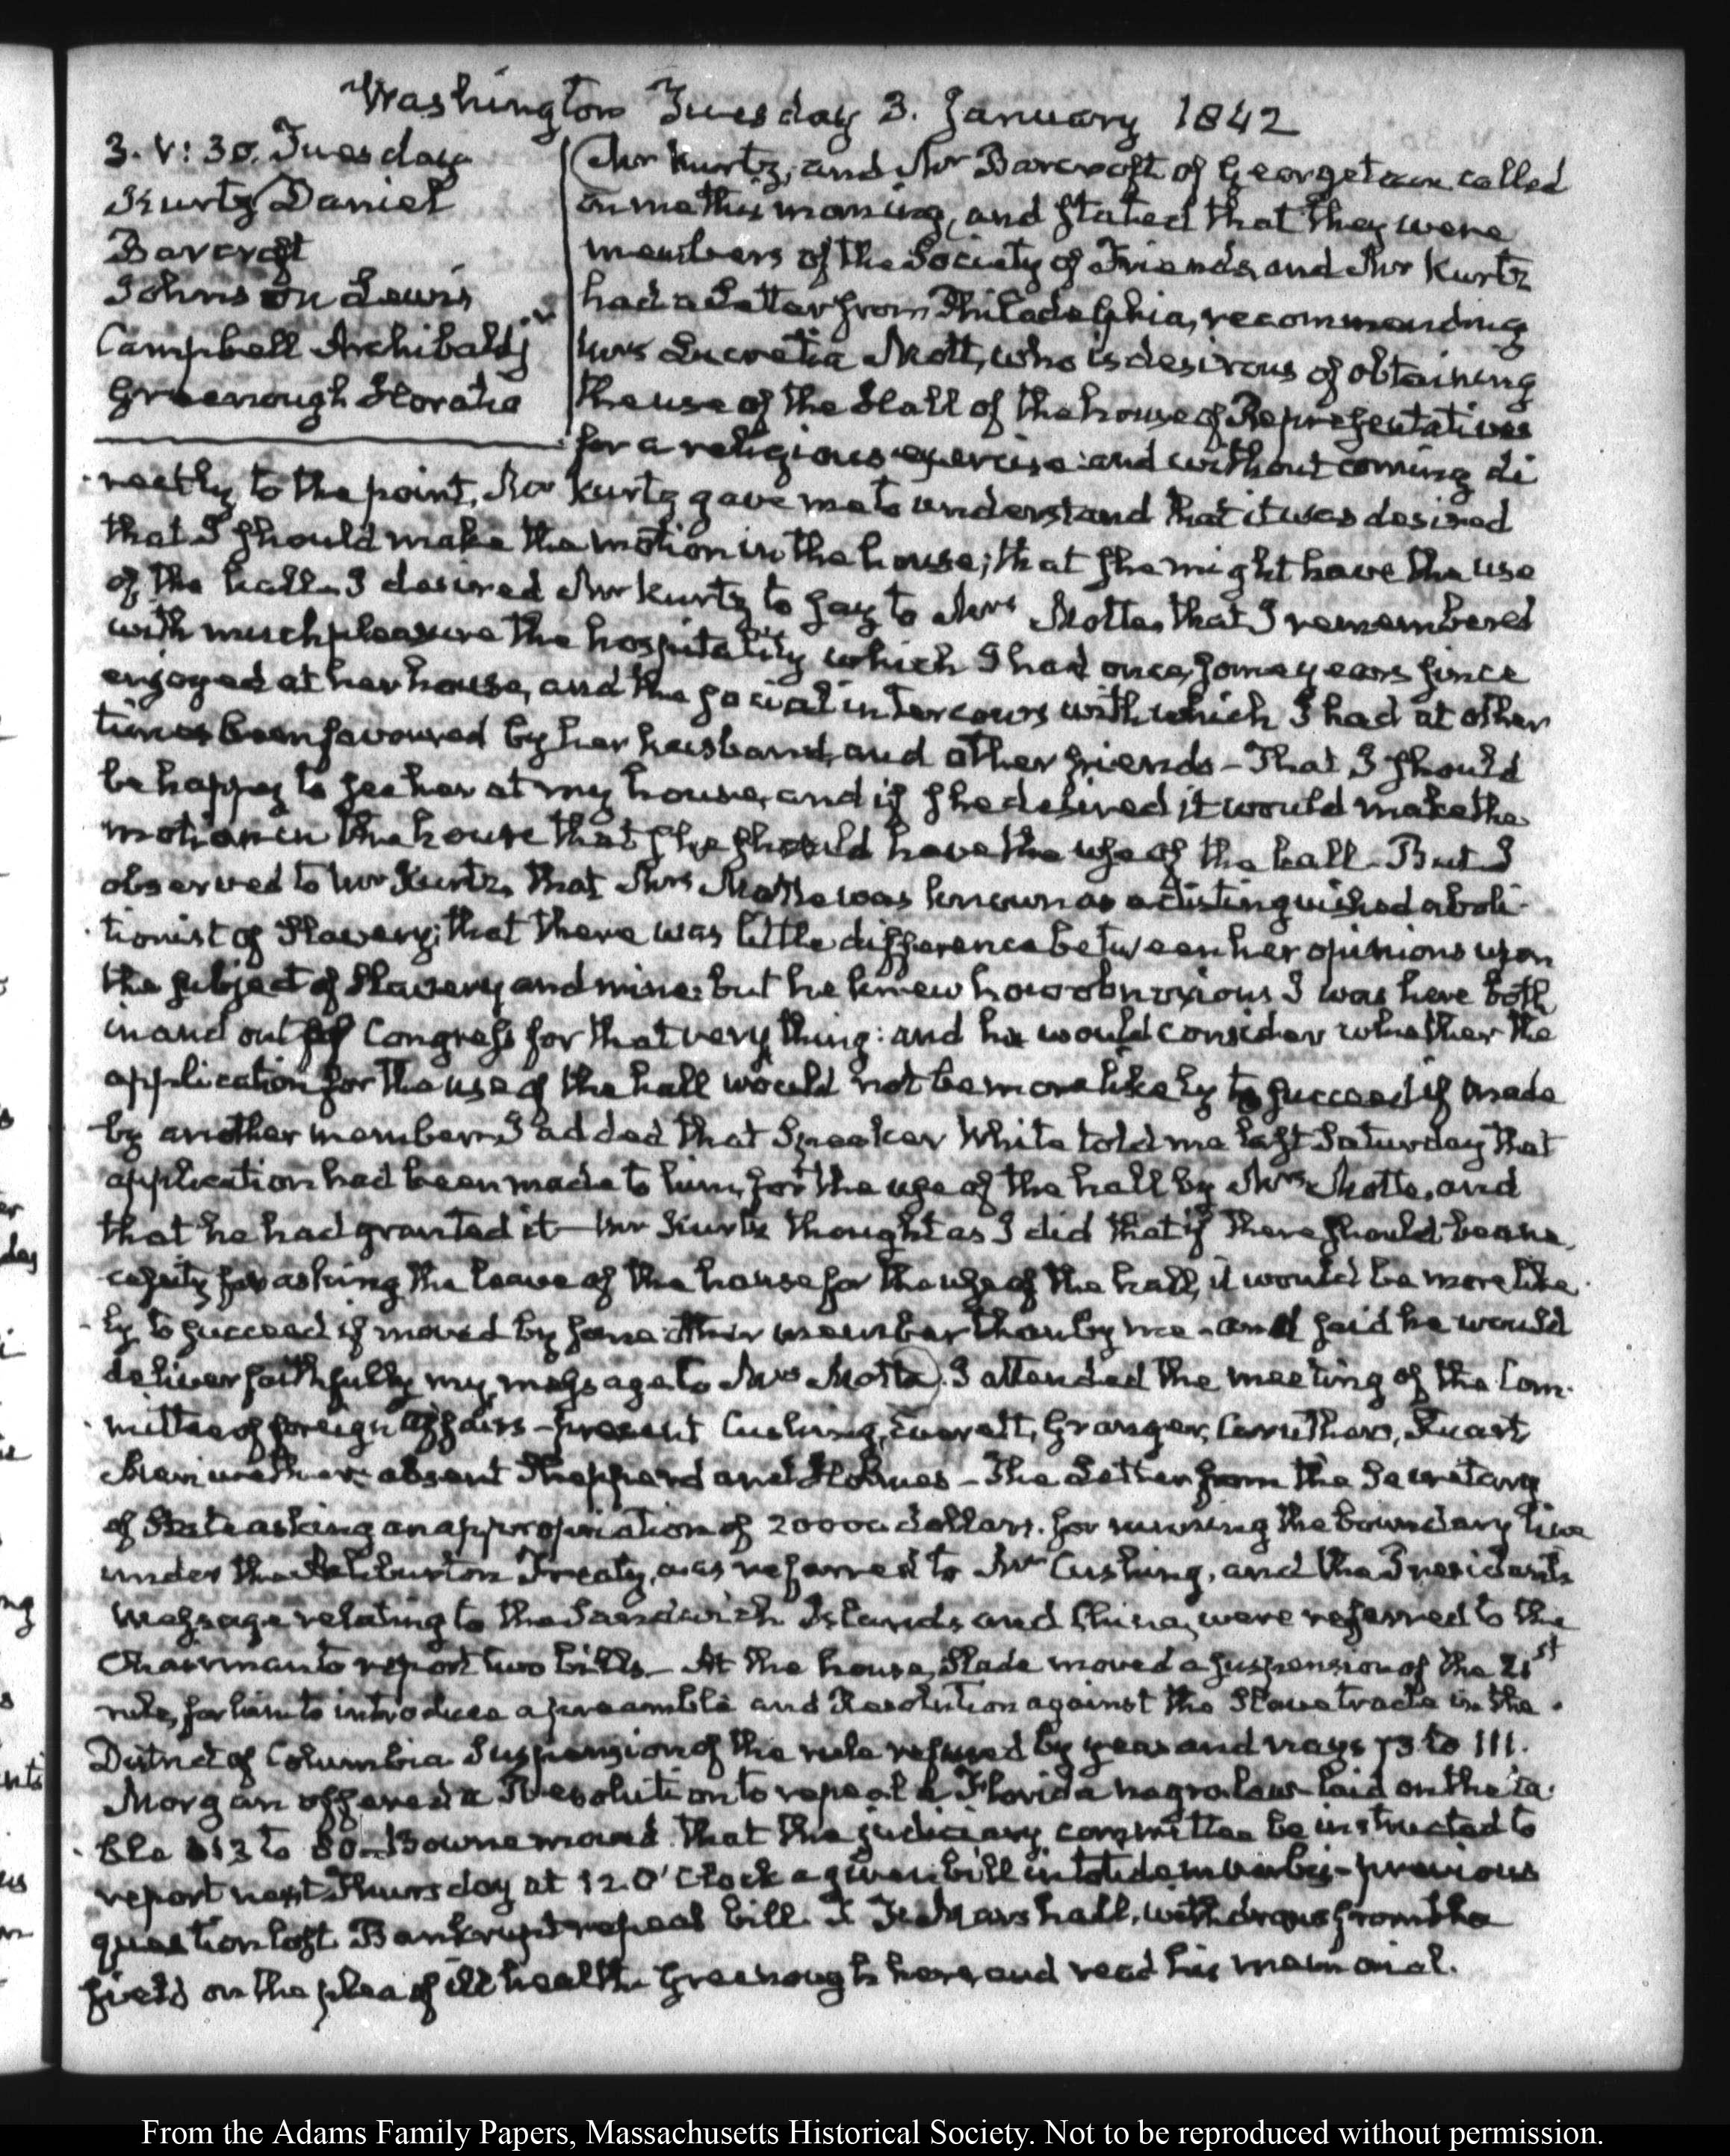 Washington Tuesday 3. January 1842
3. V: 30. Tuesday
Kurtz Daniel
Barcroft
Johnson Lewis
Campbell Archibald jr
Greenough Horatio
Mr Kurtz, and Mr Barcroft of Georgetown called
on me this morning, and stated that they were
members of the Society of Friends, and Mr Kurtz
had a Letter from Philadelphia, recommending
Mrs Lucretia Mott, who is desirous of obtaining
the use of the Hall of the house of Representatives
for a religious exercise: and without coming di
rectly to the point, Mr Kurtz gave me to understand that it was desired
that I should make the motion in the house; that she might have the use
of the hall. I desired Mr Kurtz to say to Mrs Motte, that I remembered
with much pleasure the hospitality which I had once, some years since
enjoyed at her house, and the social intercourse with which I had at other
times been favoured by her husband, and other friends – That I should
be happy to see her at my house, and if she desired it would make the
motion in the house that she should have the use of the hall – But I
observed to Mr Kurtz, that Mrs Motte was known as a distinguished aboli-
tionist of Slavery; that there was little difference between her opinions upon
the subject of Slavery and mine: but he knew how obnoxious I was here both
in and out of Congress for that very thing: and he would consider whether the
application for the use of the hall would not be more likely to succeed if made
by another member. I added that Speaker White told me last Saturday that
application had been made to him, for the use of the hall by Mrs Motte, and
that he had granted it – Mr Kurtz thought as I did that if there should be a ne
cessity for asking the leave of the house for the use of the hall, it would be more like
ly to succeed if moved by some other member than by me – and said he would
deliver faithfully my message to Mrs Motte. I attended the meeting of the Com-
mittee of foreign Affairs – present Cushing, Everett, Granger, Caruthers, Stuart
Meriwether. absent Shepperd and Holmes – The Letter from the Secretary
of State asking an appropriation of 20000 dollars. for running the boundary line
under the Ashburton Treaty, was referred to Mr Cushing, and the President's
Message relating to the Sandwich Islands, and China, were referred to the
Chairman to report two bills – At the house, Slade moved a suspension of the 21st
rule, for him to introduce a preamble and Resolution against the Slave trade in the
District of Columbia. Suspension of the rule refused by yeas and nays 73 to 111.
Morgan offered a Resolution to repeal a Florida negro law – laid on the ta
ble 113 to 80 – Bowne moved that the judiciary committee be instructed to
report next Thursday at 12 O'Clock a given bill in totidem verbis – previous
question lost. Bankrupt repeal bill. T. F. Marshall, withdraws from the
field on the plea of ill health. Greenough here, and read his memorial.
From the Adams Family Papers, Massachusetts Historical Society. Not to be reproduced without permission.